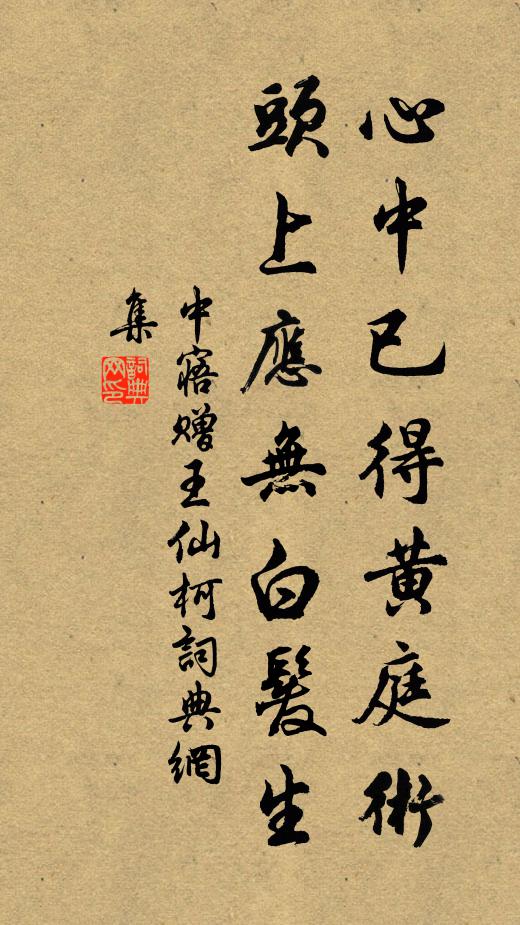 心中已得黄庭術
頭上應無白髮生
中寤赠王仙柯詞典網
集
詞典
网印